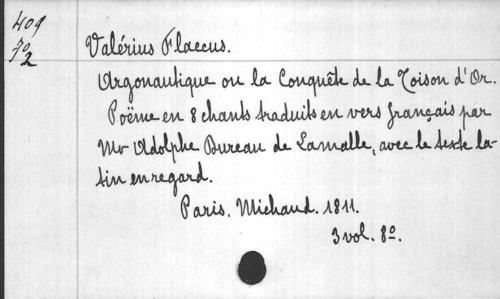 409
70
2
Valérius Flaccus.
Argonautique ou la Conquête de la Toison d'Or.
Poëme en 8 chants traduits en vers français par
Mr Adolphe Bureau de Lamalle, avec le texte la-
tin en regard.
Paris. Michaud. 1811.
3 vol. 8º.